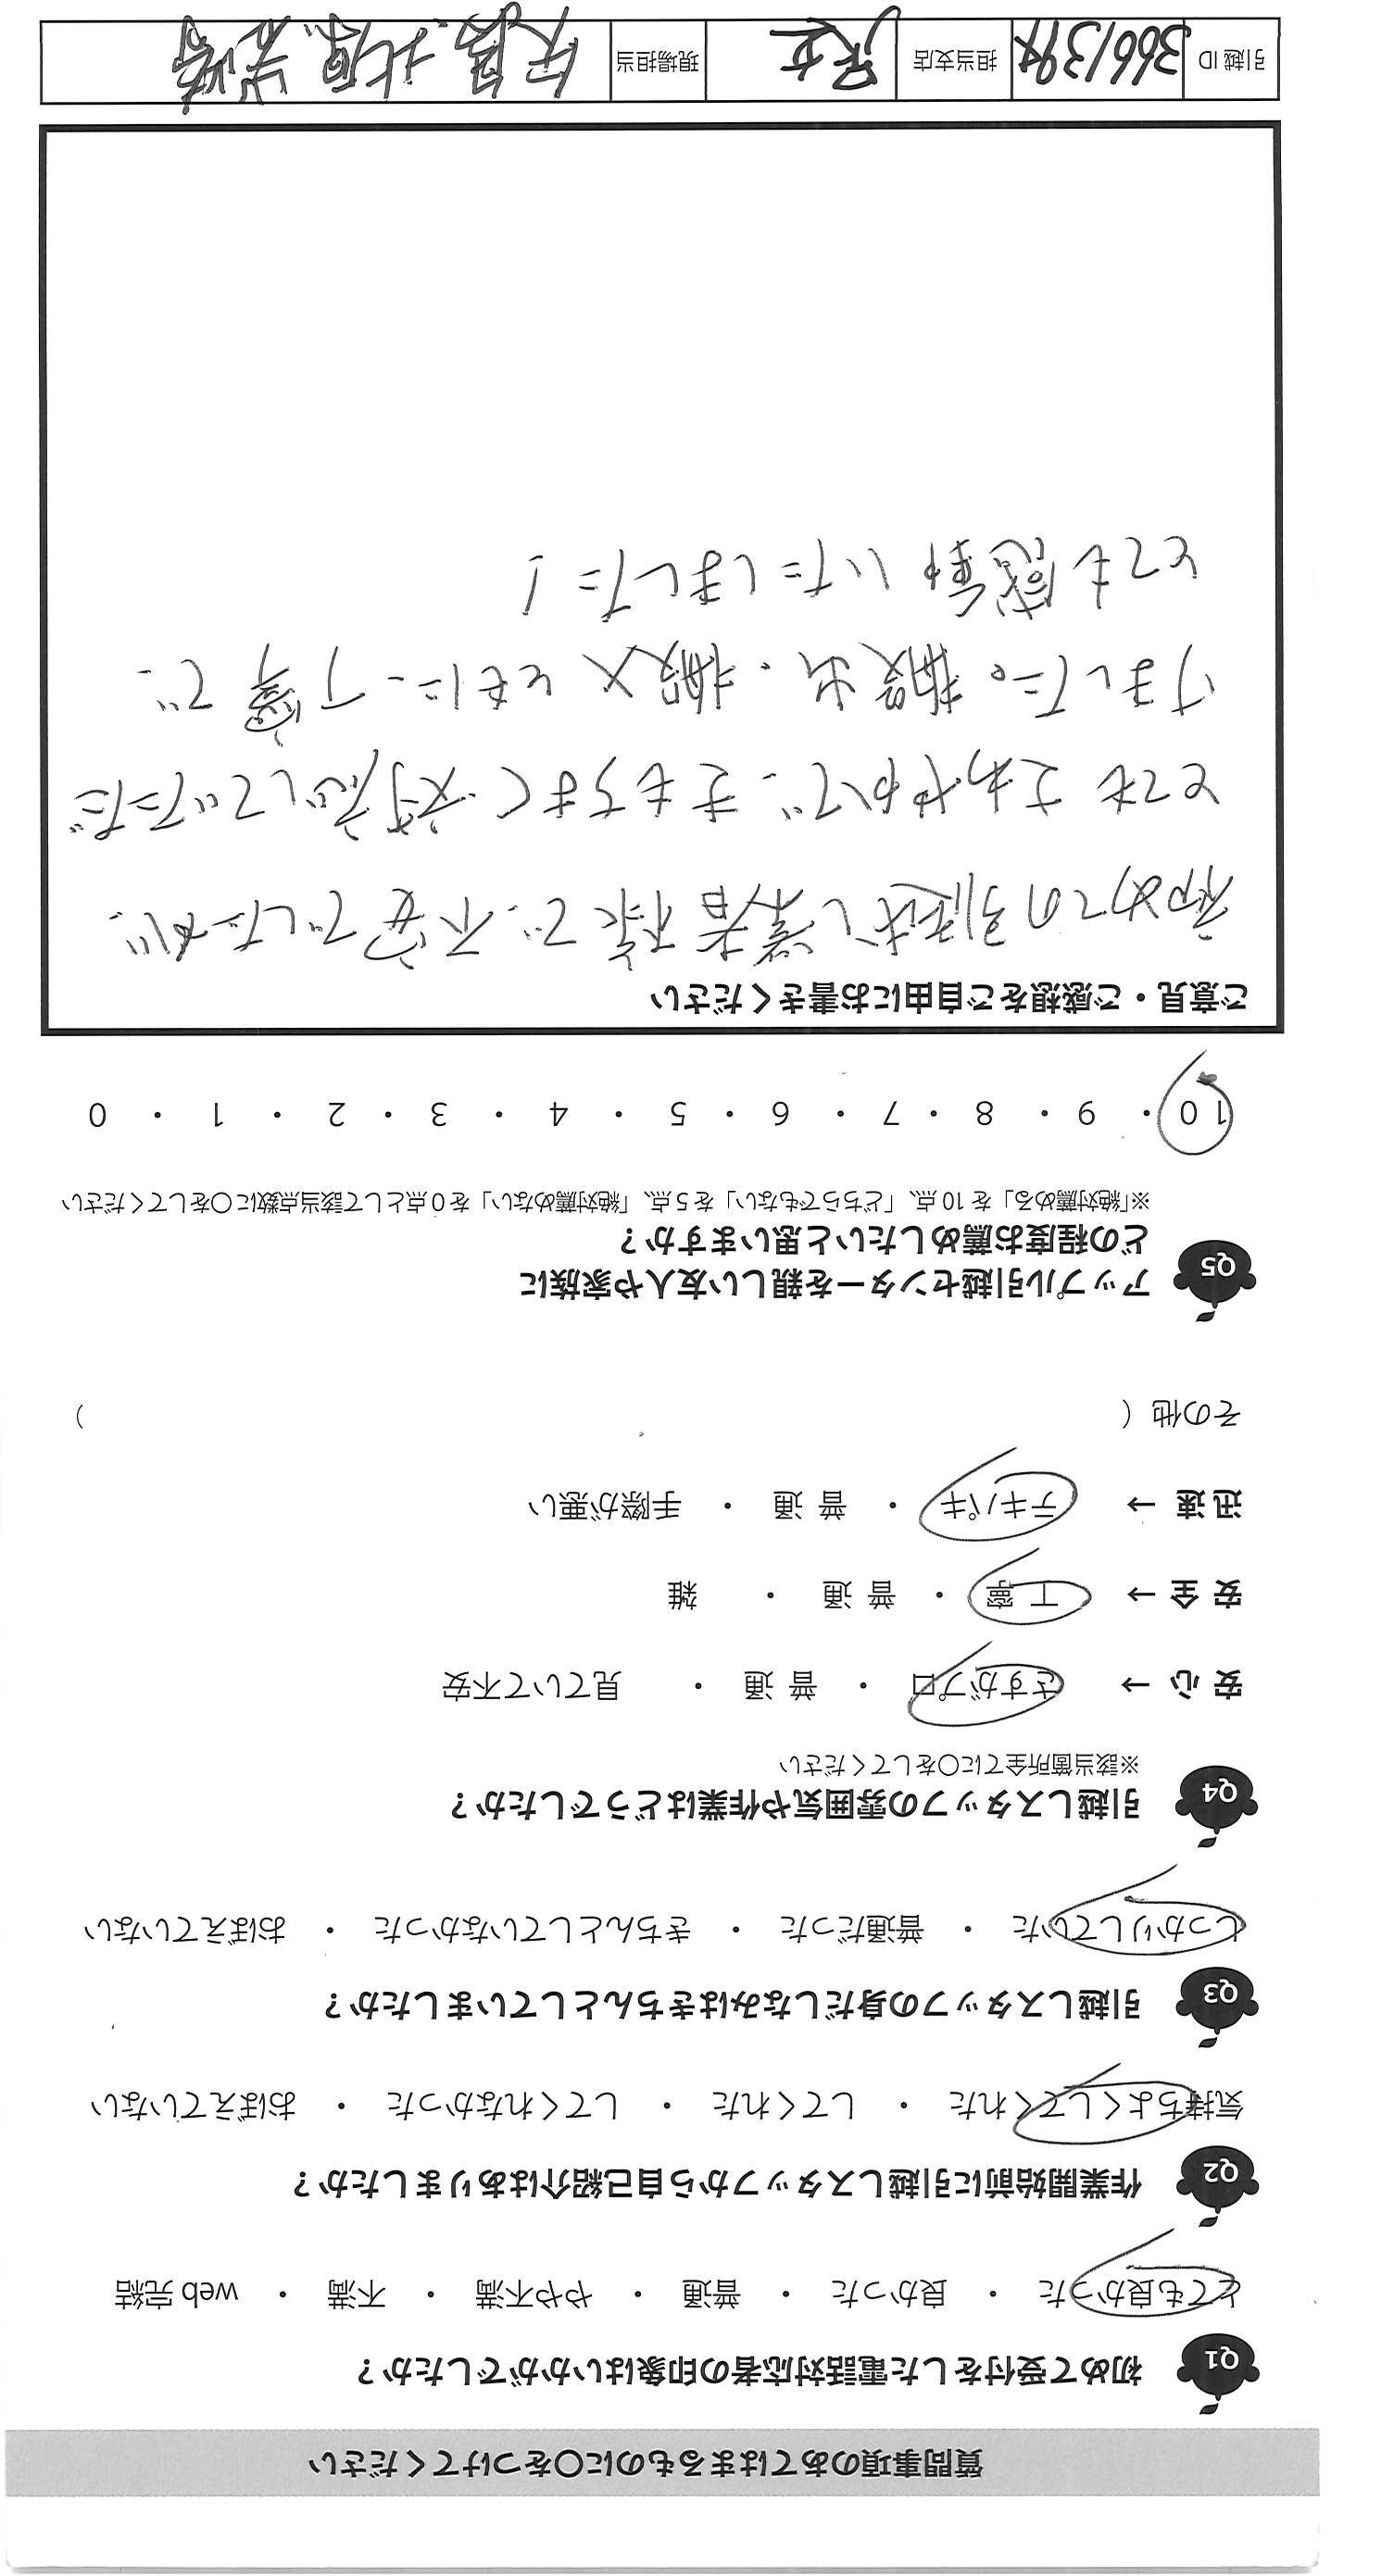 質問事項のあてはまるものに〇をつけてください
Q1 初めて受付をした電話対応者の印象はいかがでしたか？
とても良かった ・ 良かった ・ 普通 ・ やや不満 ・ 不満 ・ web 完結
Q2 作業開始前に引越しスタッフから自己紹介はありましたか？
気持ちよくしてくれた ・ してくれた ・ してくれなかった ・ おぼえていない
Q3 引越しスタッフの身だしなみはきちんとしていましたか？
しっかりしていた ・ 普通だった ・ きちんとしていなかった ・ おぼえていない
Q4 引越しスタッフの雰囲気や作業はどうでしたか？
※該当箇所全てに〇をしてください
安 心 → さすがプロ ・ 普 通 ・ 見ていて不安
安 全 → 丁 寧 ・ 普 通 ・ 雑
迅 速 → テキパキ ・ 普 通 ・ 手際が悪い
その他（ ）
Q5 アップル引越センターを親しい友人や家族に
どの程度お薦めしたいと思いますか？
※「絶対薦める」を 10 点、「どちらでもない」を 5 点、「絶対薦めない」を 0 点として該当点数に〇をしてください
10 ・ 9 ・ 8 ・ 7 ・ 6 ・ 5 ・ 4 ・ 3 ・ 2 ・ 1 ・ 0
ご意見・ご感想をご自由にお書きください
初めての引越し業者様で、不安でしたが、
とても さわやかで、きもちよく対応していただ
けました。搬出・搬入ともに、丁寧で、
とても感動いたしました！
引越 ID 担当支店 現場担当 矢島、北原、岩崎